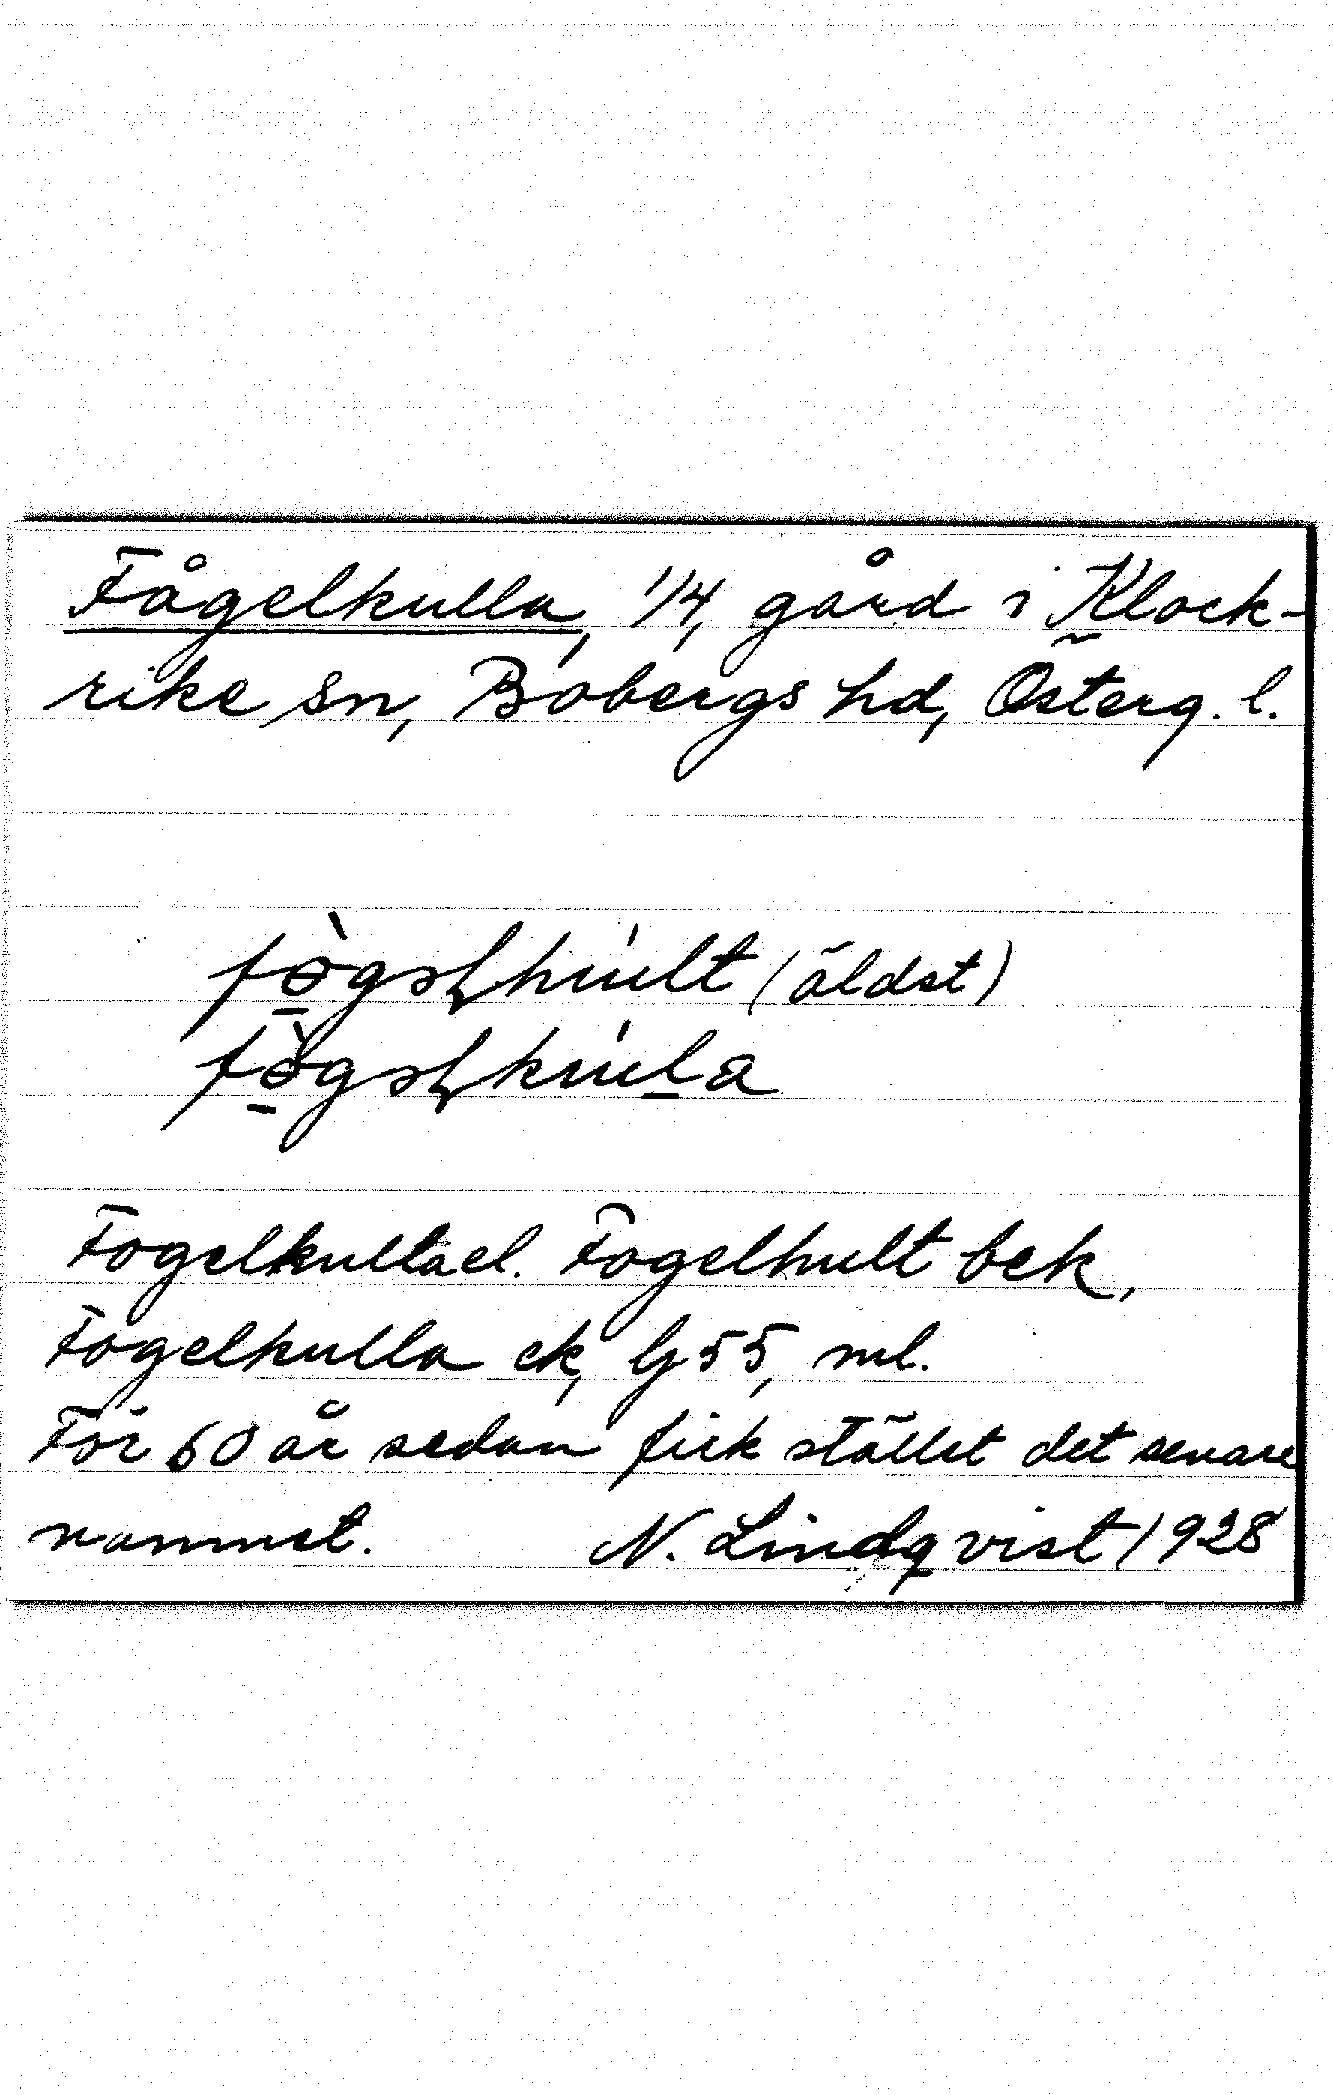 Fågelkulla, 1/4, gård i Klock-
rike sn, Bobergs hd, Österg. l.
fò̱gəɭhúlt (äldst)
fò̱gəɭkúḻa
Fogelkulla el. Fogelhult bek,
Fogelkulla ek, lj 55, ml.
För 60 år sedan fick stället det senare
namnet. N. Lindqvist 1928